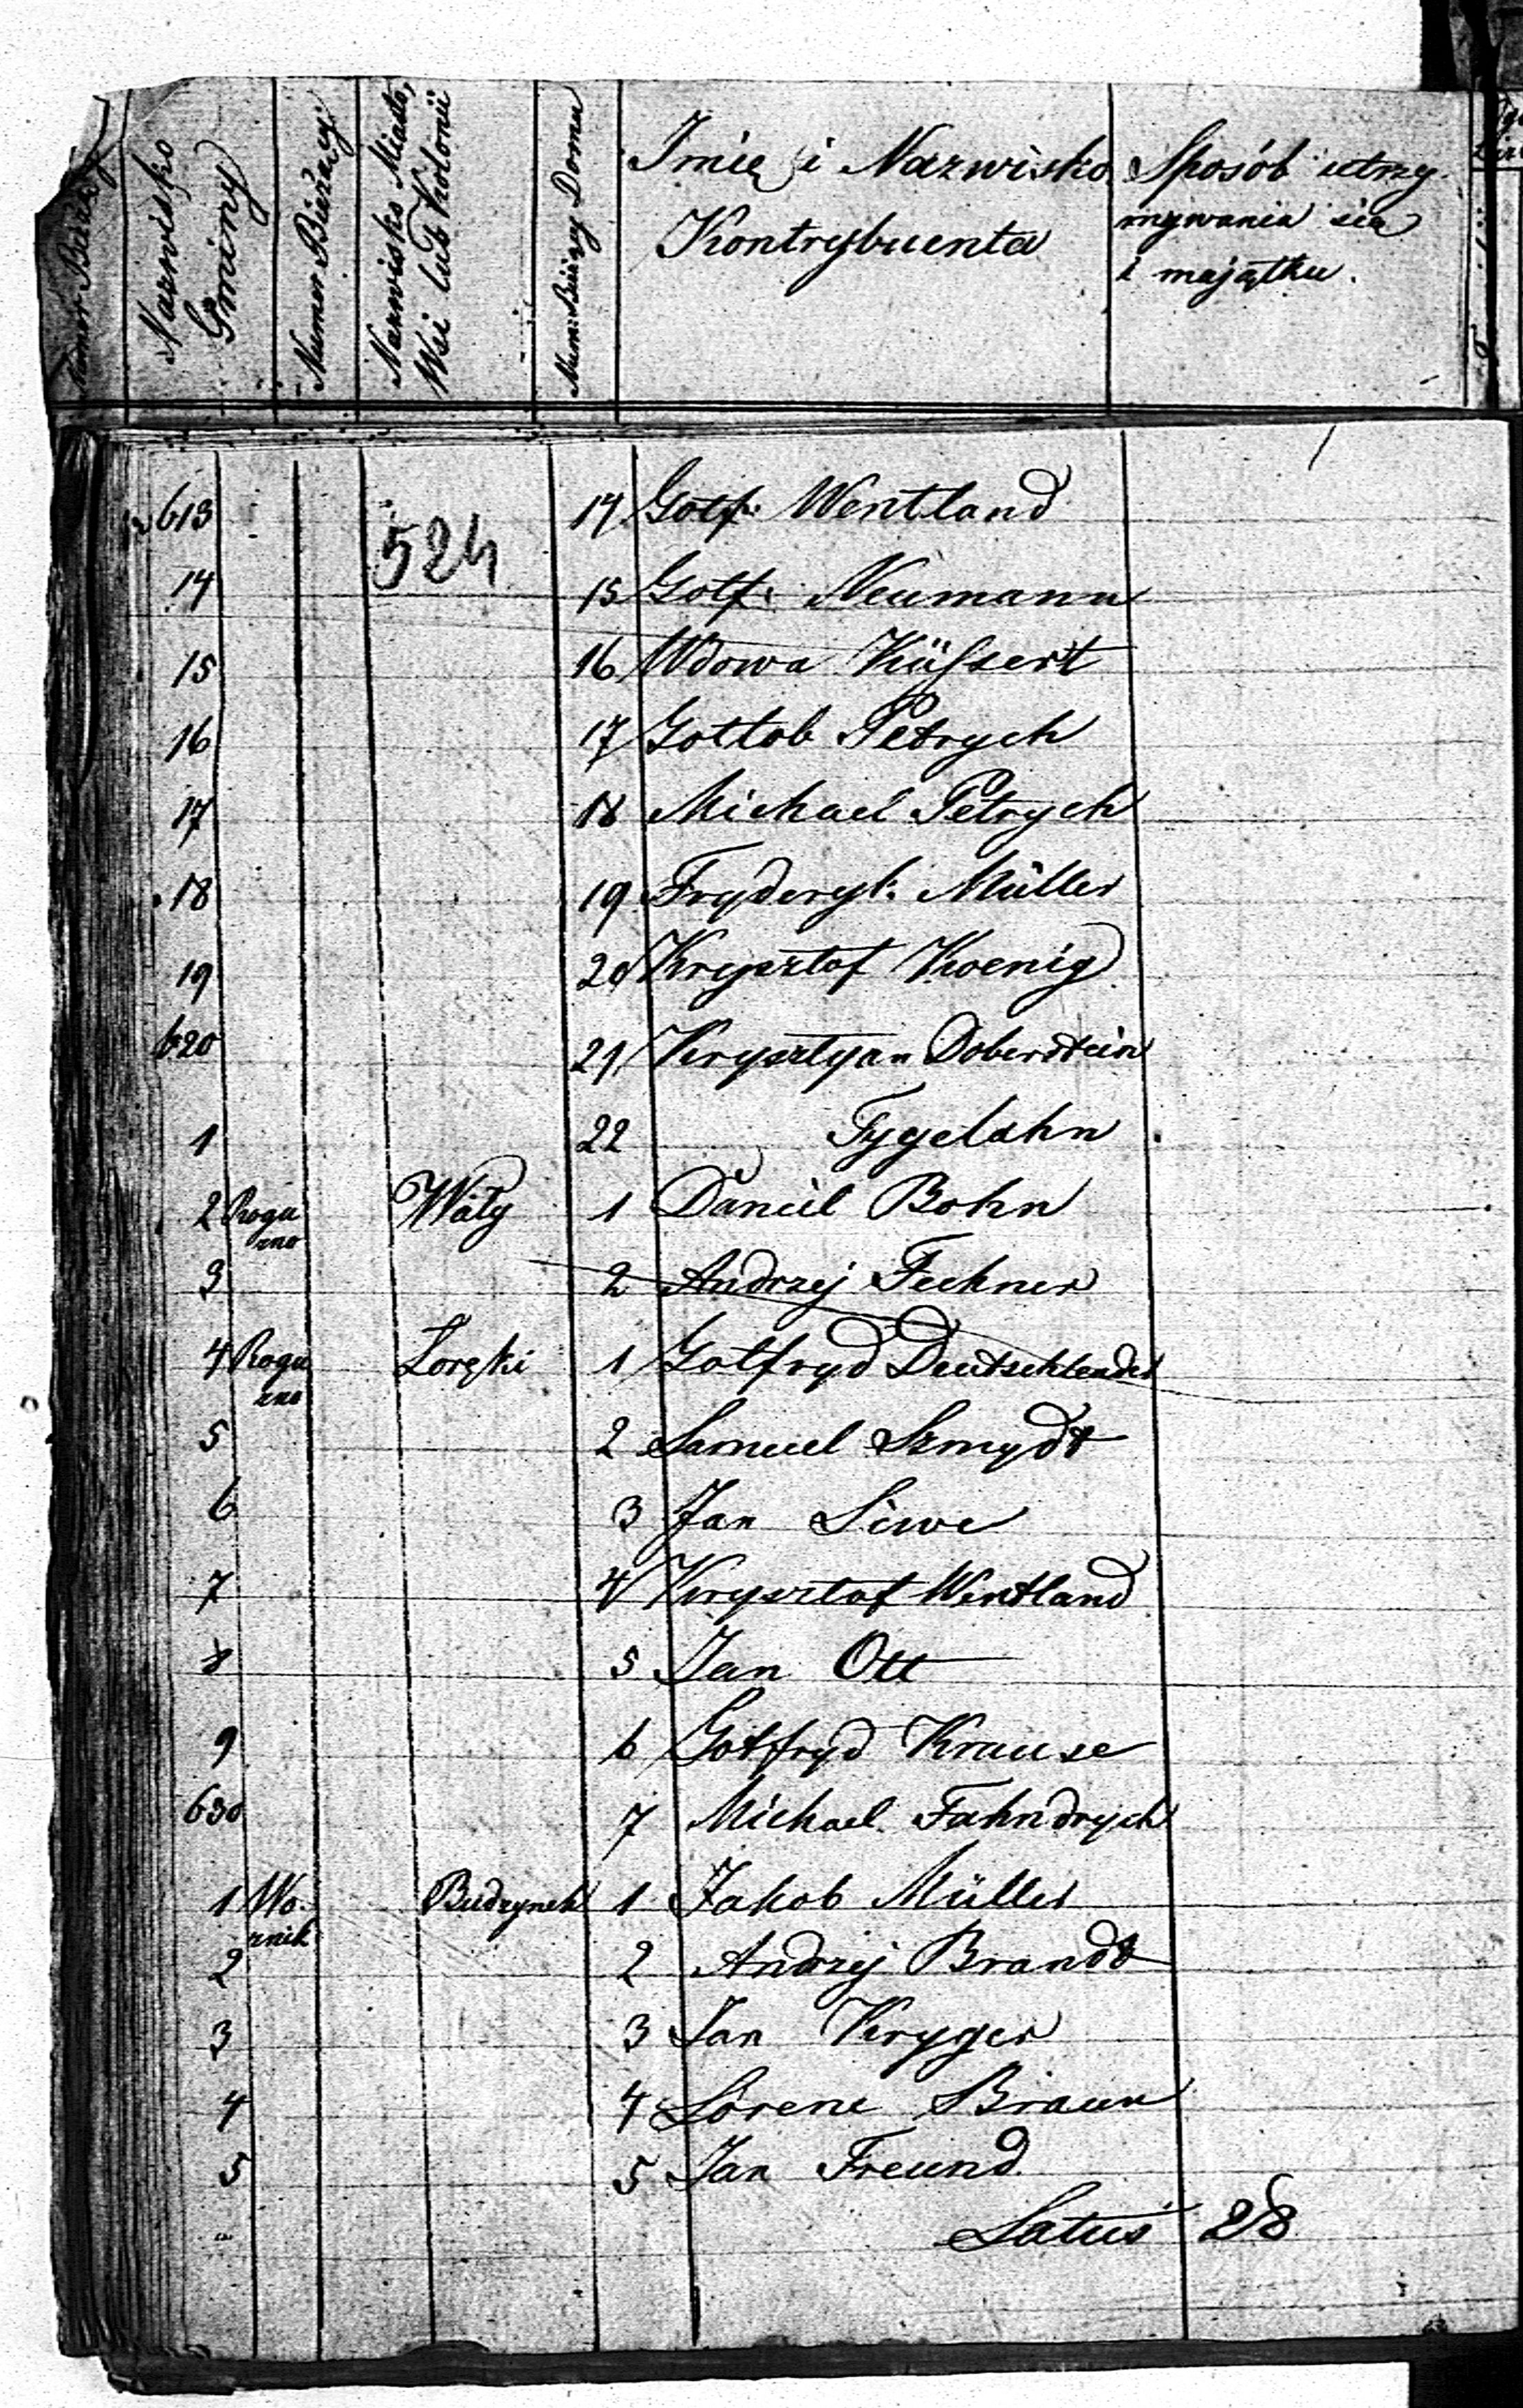 Numer Bieżący
Nazwisko Gminy
Numer Bieżący
Nazwisko Miasta, Wsi lub Kolonii
Num: Bieżący Domu
Imię i Nazwisko Kontrybuenta
Sposób utrzymywania się i majątku.
613 14 Gotf: Wentland
524
14 15 Gotf: Neumann
15 16 Wdowa Küssert
16 17 Gottob Petrych
17 18 Michael Petrych
18 19 Fryderyk: Müller
19 20 Krysztof Koenig
620 21 Krysztyan Doberstein
1 22 Tygelahn
2 Roguzno Wały 1 Daniel Bohn
3 2 Andrzej Fechner
4 Roguzno Toręki 1 Gotfryd Deutschlender
5 2 Samuel Szmydt
6 3 Jan Siwe
7 4 Krysztof Wentland
8 5 Jan Ott
9 6 Gotfryd Krause
630 7 Michael Fahndrych
1 Woznik Budzynek 1 Jakob Müller
2 2 Andrzej Brandt
3 3 Jan Kryger
4 4 Lorenc Braun
5 5 Jan Freund
Latus 28